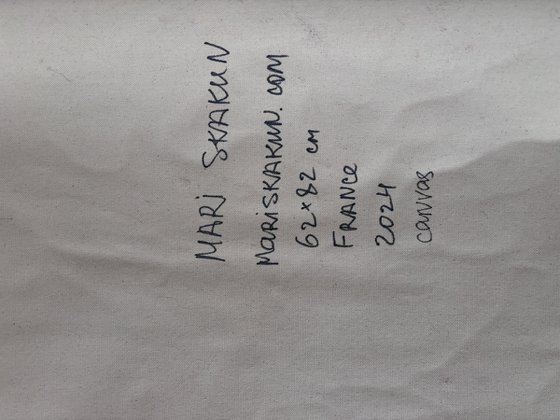 MARI SKAKUN
MARISKAKUN.COM
62×82 cm
FRANCE
2024
canvas